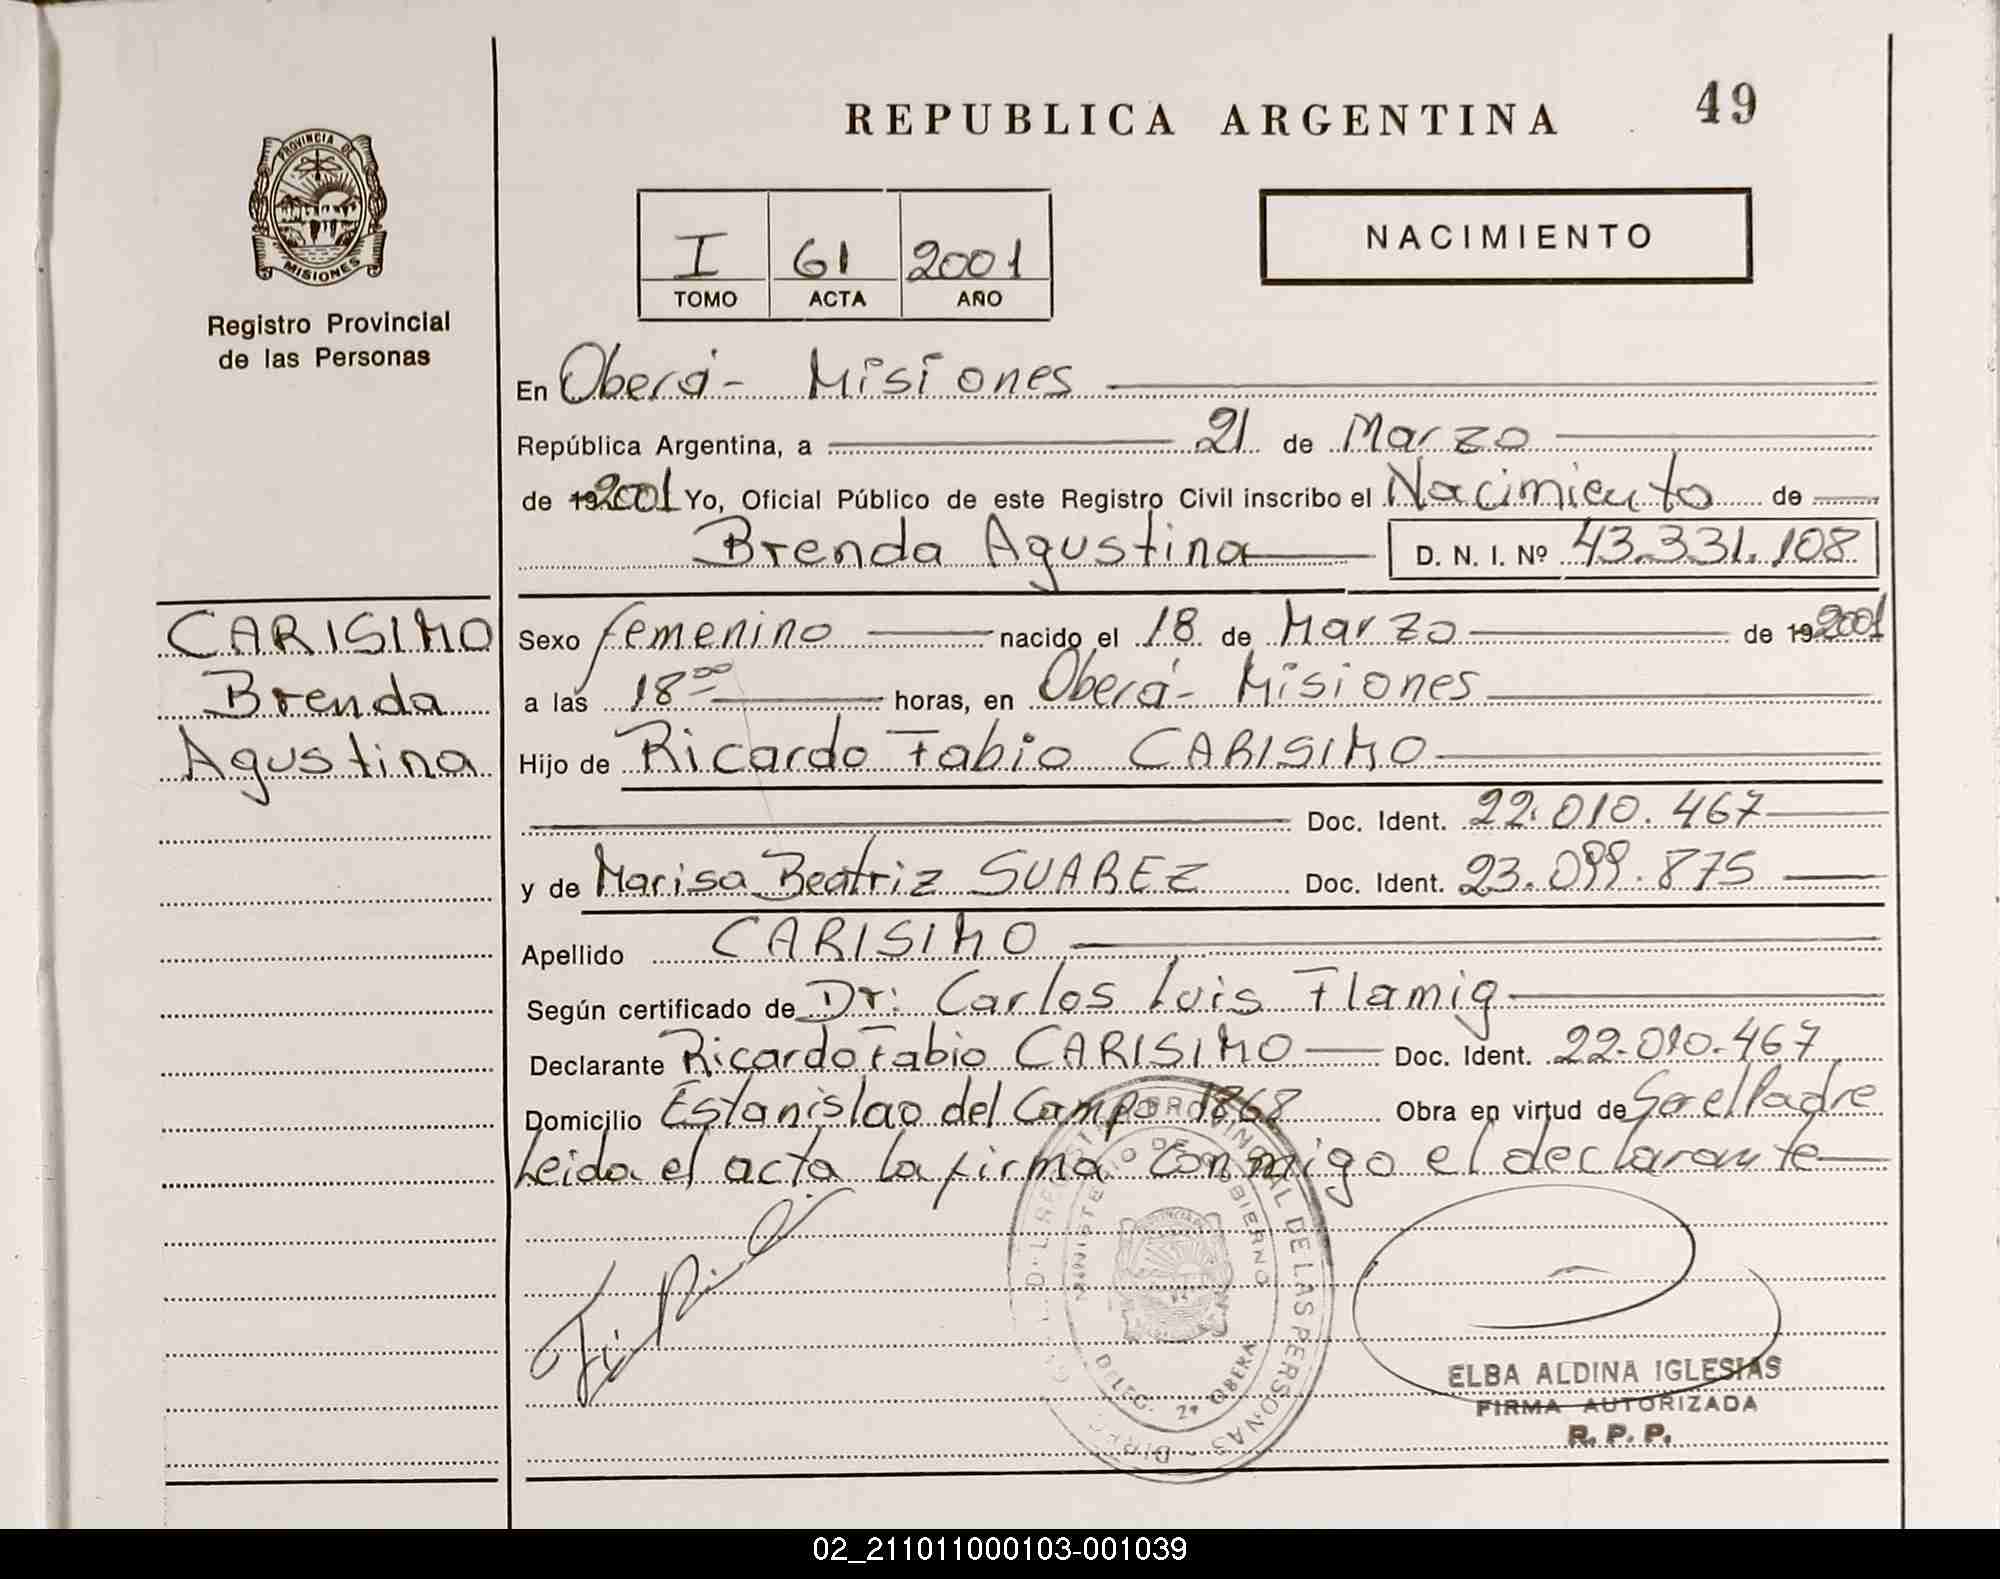 REPUBLICA ARGENTINA
49
PROVINCIA DE
MISIONES
Registro Provincial
de las Personas
I 61 2001
TOMO ACTA AÑO
NACIMIENTO
En Oberá - Misiones
República Argentina, a 21 de Marzo
de 192001 Yo, Oficial Público de este Registro Civil inscribo el Nacimiento de
Brenda Agustina D. N. I. Nº 43.331.108
CARISIMO
Brenda
Agustina
Sexo femenino nacido el 18 de Marzo de 192001
a las 18 00 horas, en Oberá - Misiones
Hijo de Ricardo Fabio CARISIMO
Doc. Ident. 22.010.467
y de Marisa Beatriz SUAREZ Doc. Ident. 23.099.875
Apellido CARISIMO
Según certificado de Dr: Carlos Luis Flamig
Declarante Ricardo Fabio CARISIMO Doc. Ident. 22.010.467
Domicilio Estanislao del Campo 1868 Obra en virtud de Ser el Padre
Leida el acta la firma conmigo el declarante
PROVINCIAL DE LAS PERSONAS
MINISTERIO DE GOBIERNO
DELEG. 2ª OBERA
ELBA ALDINA IGLESIAS
FIRMA AUTORIZADA
R. P. P.
02_211011000103-001039